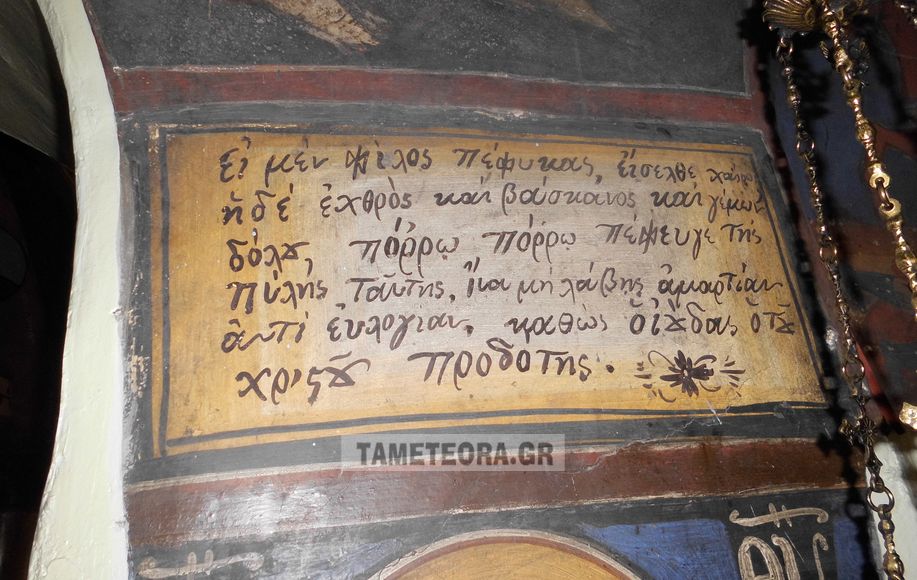 εἰ μὲν φίλος πέφυκας, εἴσελθε χαίρων
ἠ δέ ἐχθρὸς καὶ βάσκανος καὶ γέμων
δόλȣ, πόρρω πόρρω πέφευγε τῆς
πύλης ταύτης, ἵνα μὴ λάβης ἁμαρτίαν
ἀντί εὐλογίαν, καθὼς ὁ ἰȣ́δας ὁ τȣ͂
χριϛȣ͂ προδότης.
TAMETEORA.GR